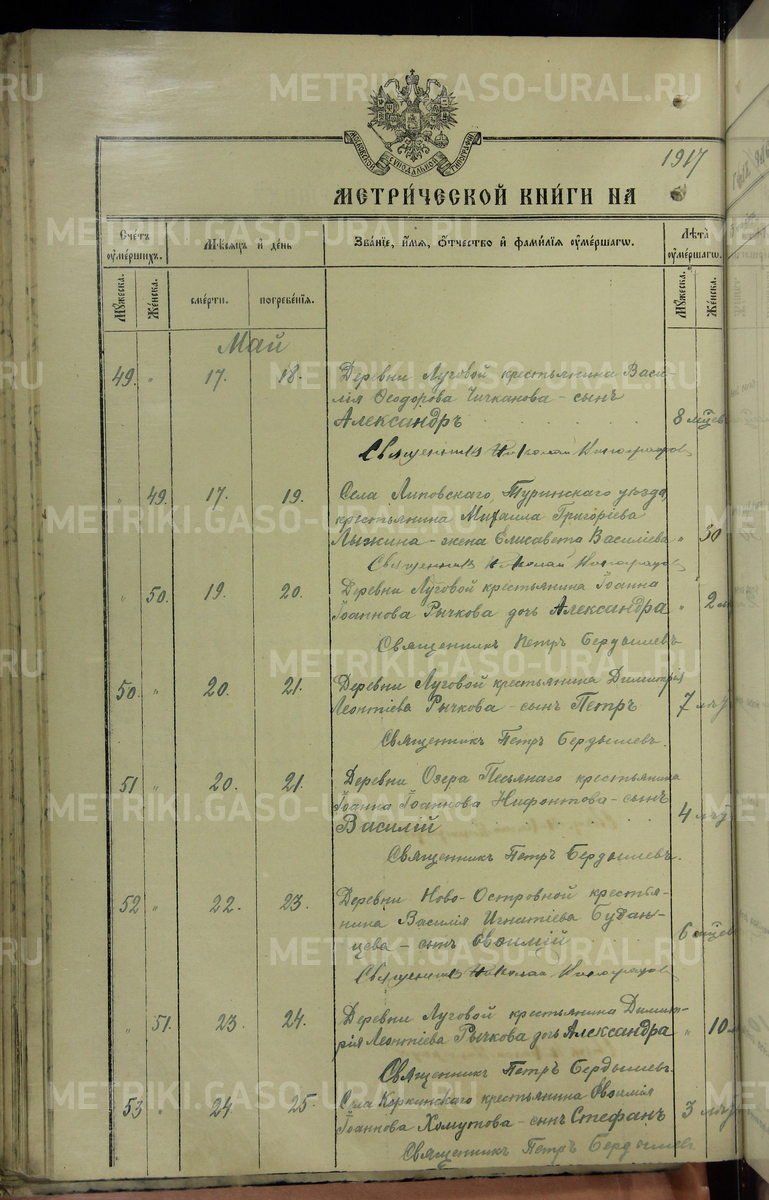 METRIKI.GASO-URAL.RU
МОСКОВСКОЙ СѴНОДАЛЬНОЙ ТИПОГРАФІИ
1917
МЕТРИ́ЧЕСКОЙ КНИ́ГИ НА
Сче́тъ ᲂу҆ме́ршихъ.
Мѣ́сяцъ и҆ де́нь
Зва́нїе, и҆́мя, ѻ҆́тчество и҆ фами́лїя ᲂу҆ме́ршагѡ.
Лѣ́та ᲂу҆ме́ршагѡ.
Мꙋ́жеска.
Же́нска.
сме́рти.
погребе́нїя.
Мꙋ́жеска.
Же́нска.
Май
49. " 17. 18. Деревни Луговой крестьянина Васи-
лія Ѳеодорова Чичканова - сынъ
Александръ 8 мцевъ
Священникъ Николай
" 49. 17. 19. Села Липовскаго, Туринскаго уѣзда,
крестьянина Михаила Григоріева
Лыжина - жена Елисавета Василіева " 30
Священникъ Николай
" 50. 19. 20. Деревни Луговой крестьянина Іоанна
Іоаннова Рычкова дочь Александра " 2
Священникъ Петръ Бердышевъ
50. " 20. 21. Деревни Луговой крестьянина Димитрія
Леонтіева Рычкова - сынъ Петръ 7
Священникъ Петръ Бердышевъ.
51 " 20. 21. Деревни Озера Песьянаго крестьянина
Іоанна Іоаннова Нифонтова - сынъ
Василій 4
Священникъ Петръ Бердышевъ.
52 " 22. 23. Деревни Ново-Островной крестья-
нина Василія Игнатіева
- сынъ Евѳимій 6 мцев
Священникъ Николай
" 51. 23. 24. Деревни Луговой крестьянина Димит-
рія Леонтіева Рычкова дочь Александра " 10
Священникъ Петръ Бердышевъ.
53 " 24 25. Села Коркинскаго крестьянина Евѳимія
Іоаннова Хомутова - сынъ Стефанъ 3
Священникъ Петръ Бердышев